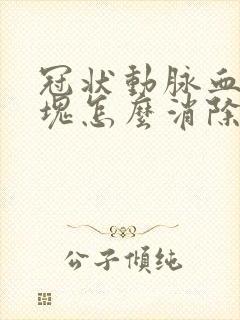 冠狀動脈血
塊怎麼消除
公子傾純